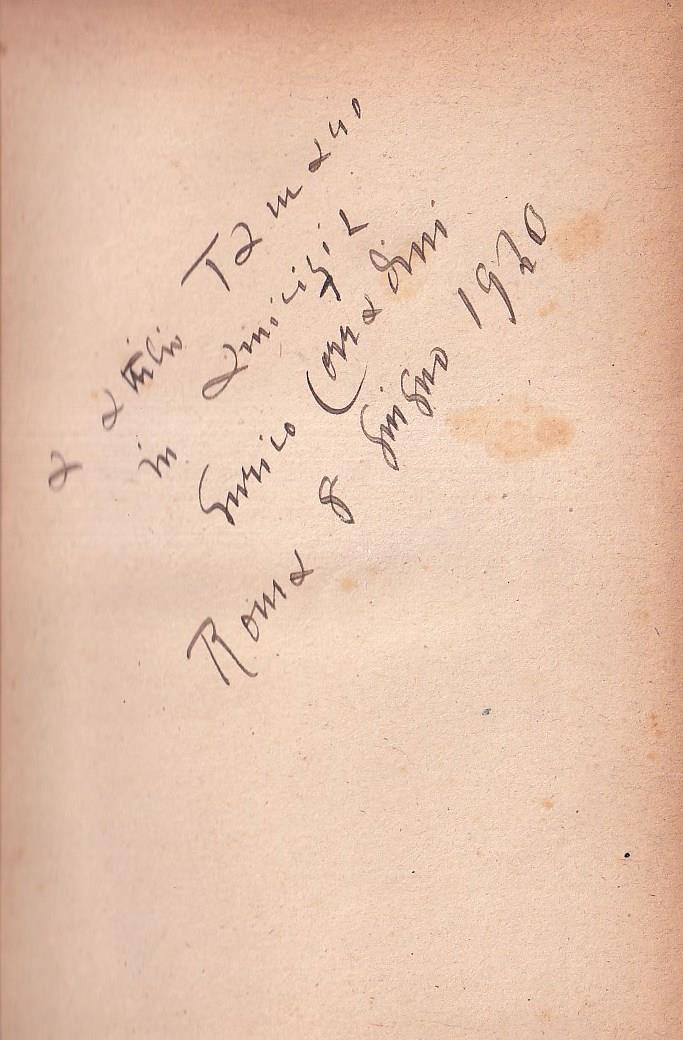 a Attilio Tamaro
in amicizia
Enrico Corradini
Roma 8 giugno 1920